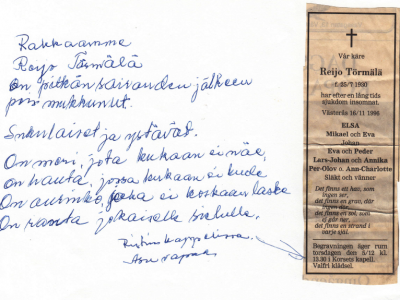 Rakkaamme
Reijo Törmälä
on pitkän sairauden jälkeen
pois nukkunut.
Sukulaiset ja ystävät.
On meri, jota kukaan ei näe,
on hauta, jossa kukaan ei kuole
On aurinko, joka ei koskaan laske
On ranta jokaiselle sielulle.
Ristinkappelissa
Vår käre
Reijo Törmälä
f. 25/7 1930
har efter en lång tids
sjukdom insomnat.
Västerås 16/11 1996
ELSA
Mikael och Eva
Johan
Eva och Peder
Lars-Johan och Annika
Per-Olov o. Ann-Charlotte
Släkt och vänner
det finns ett hav, som
ingen ser,
det finns en grav, där
ingen dör.
det finns en sol, som ej
går ner,
det finns en strand i
varje själ.
Begravningen äger rum
torsdagen den 5/12 kl.
13.30 i Korsets kapell.
Valfri klädsel.